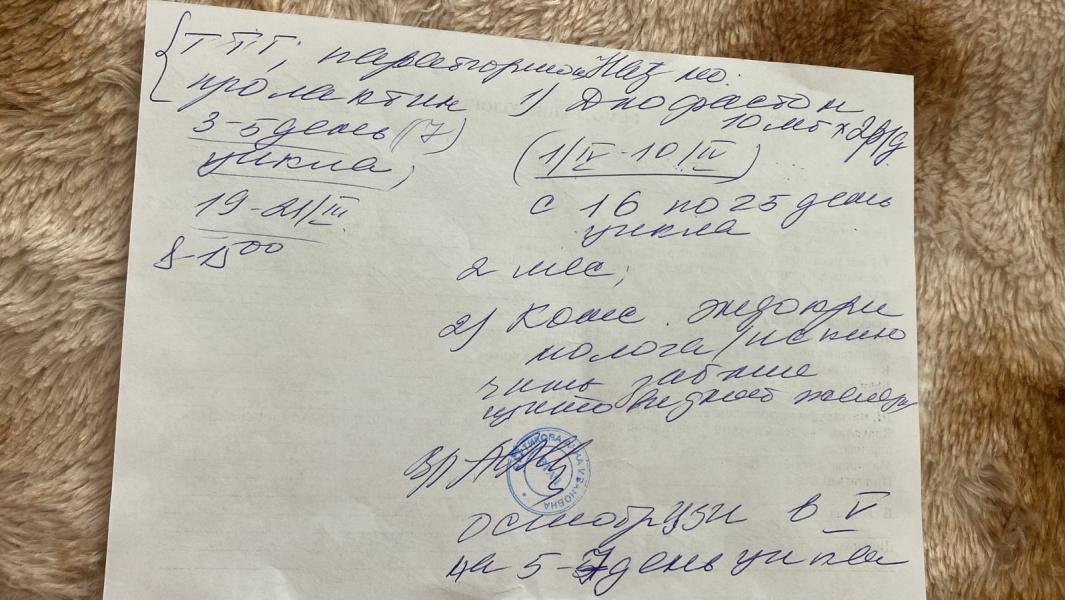 ТТГ, паратгормон
пролактин
3-5 день (7)
цикла,
19-21/III
8-15⁰⁰
Наз но:
1) Дюфастон
10 мг x 2р/д
(1/IV-10/IV)
с 16 по 25 день
цикла
2 мес;
2) Конс. эндокри
нолога /исклю
чить забние
щитовидной железы
Вр
осмотр узи в V
на 5-7 день цикла